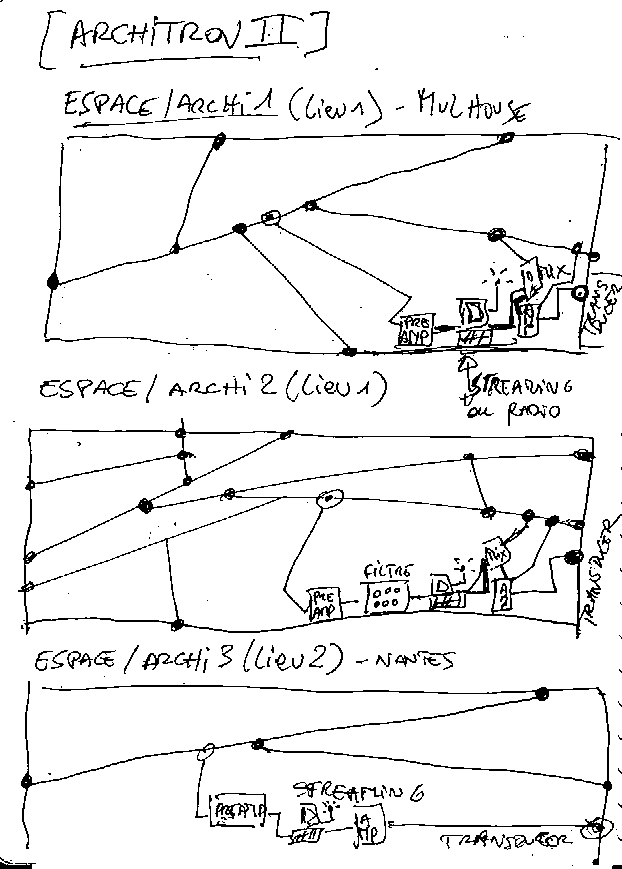 [ARCHITRON II]
ESPACE/ARCHI 1 (LIEU 1) - MULHOUSE
MIX
PRE AMP
TRANSDUCER
ESPACE/ARCHI 2 (LIEU 1)
STREAMING
OU RADIO
MIX
FILTRE
PRE AMP
A 2
TRANSDUCER
ESPACE/ARCHI 3 (LIEU 2) - NANTES
STREAMING
PREAMP
AMP
TRANSDUCER